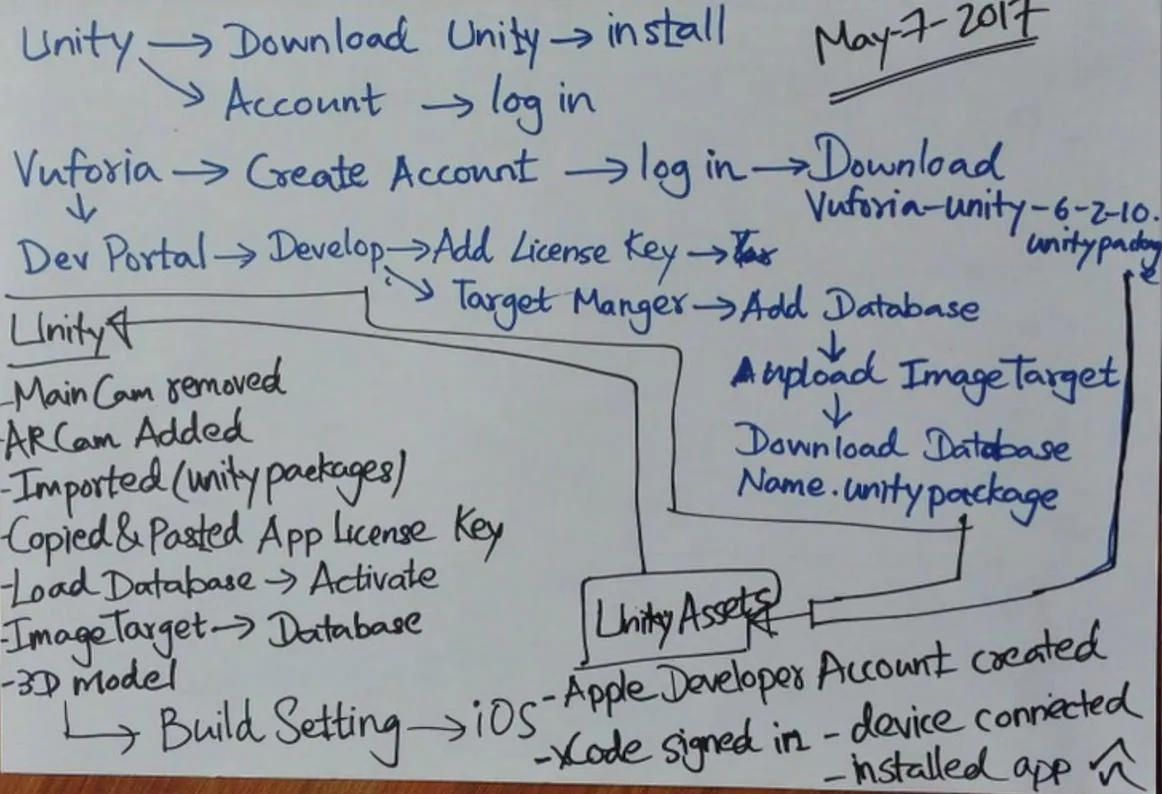 Unity → Download Unity → install
May-7-2017
Account → log in
Vuforia → Create Account → log in → Download
Vuforia-unity-6-2-10.
unitypackage
Dev Portal → Develop → Add License Key →
Target Manger → Add Database
Unity
upload ImageTarget
Download Database
Name.unitypackage
-Main Cam removed
-ARCam Added
-Imported (unity packages)
-Copied & Pasted App License Key
-Load Database → Activate
-ImageTarget → Database
-3D model
Unity Assets
Build Setting → iOS
-Apple Developer Account created
-XCode signed in - device connected
-installed app